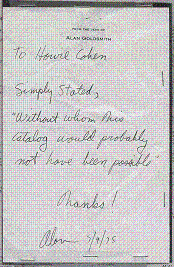 FROM THE DESK OF
ALAN GOLDSMITH
To Howie Cohen
Simply Stated,
"Without whom this
catalog would probably
not have been possible"
Thanks!
Alan 7/9/75